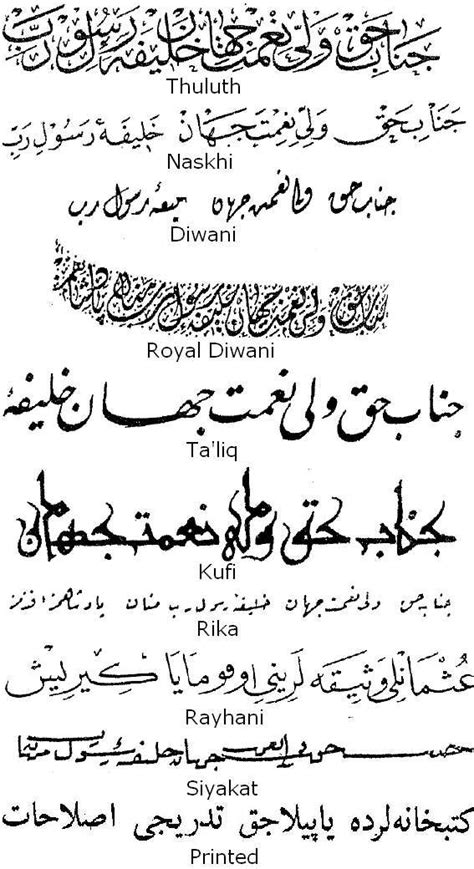 جناب حق ولی نعمت جهان خلیفه رسول رب
Thuluth
جَنَابِ حَقْ وَلِيِّ نِعْمَتِ جَهَانْ خَلِيفَهٔ رَسُولِ رَبِّ
Naskhi
جناب حق ولی نعمت جهان خلیفهٔ رسول رب
Diwani
جناب حق ولی نعمت جهان خلیفه رسول رب
Royal Diwani
جناب حق ولی نعمت جهان خلیفهٔ
Ta'liq
جناب حق ولی نعمت جهان
Kufi
جناب حق ولی نعمت جهان خلیفهٔ رسول رب
Rika
عثمانلی وثیقه لرینی اوقومایا کیریش
Rayhani
Siyakat
كتبخانه لرده ياپيلاجق تدريجى اصلاحات
Printed